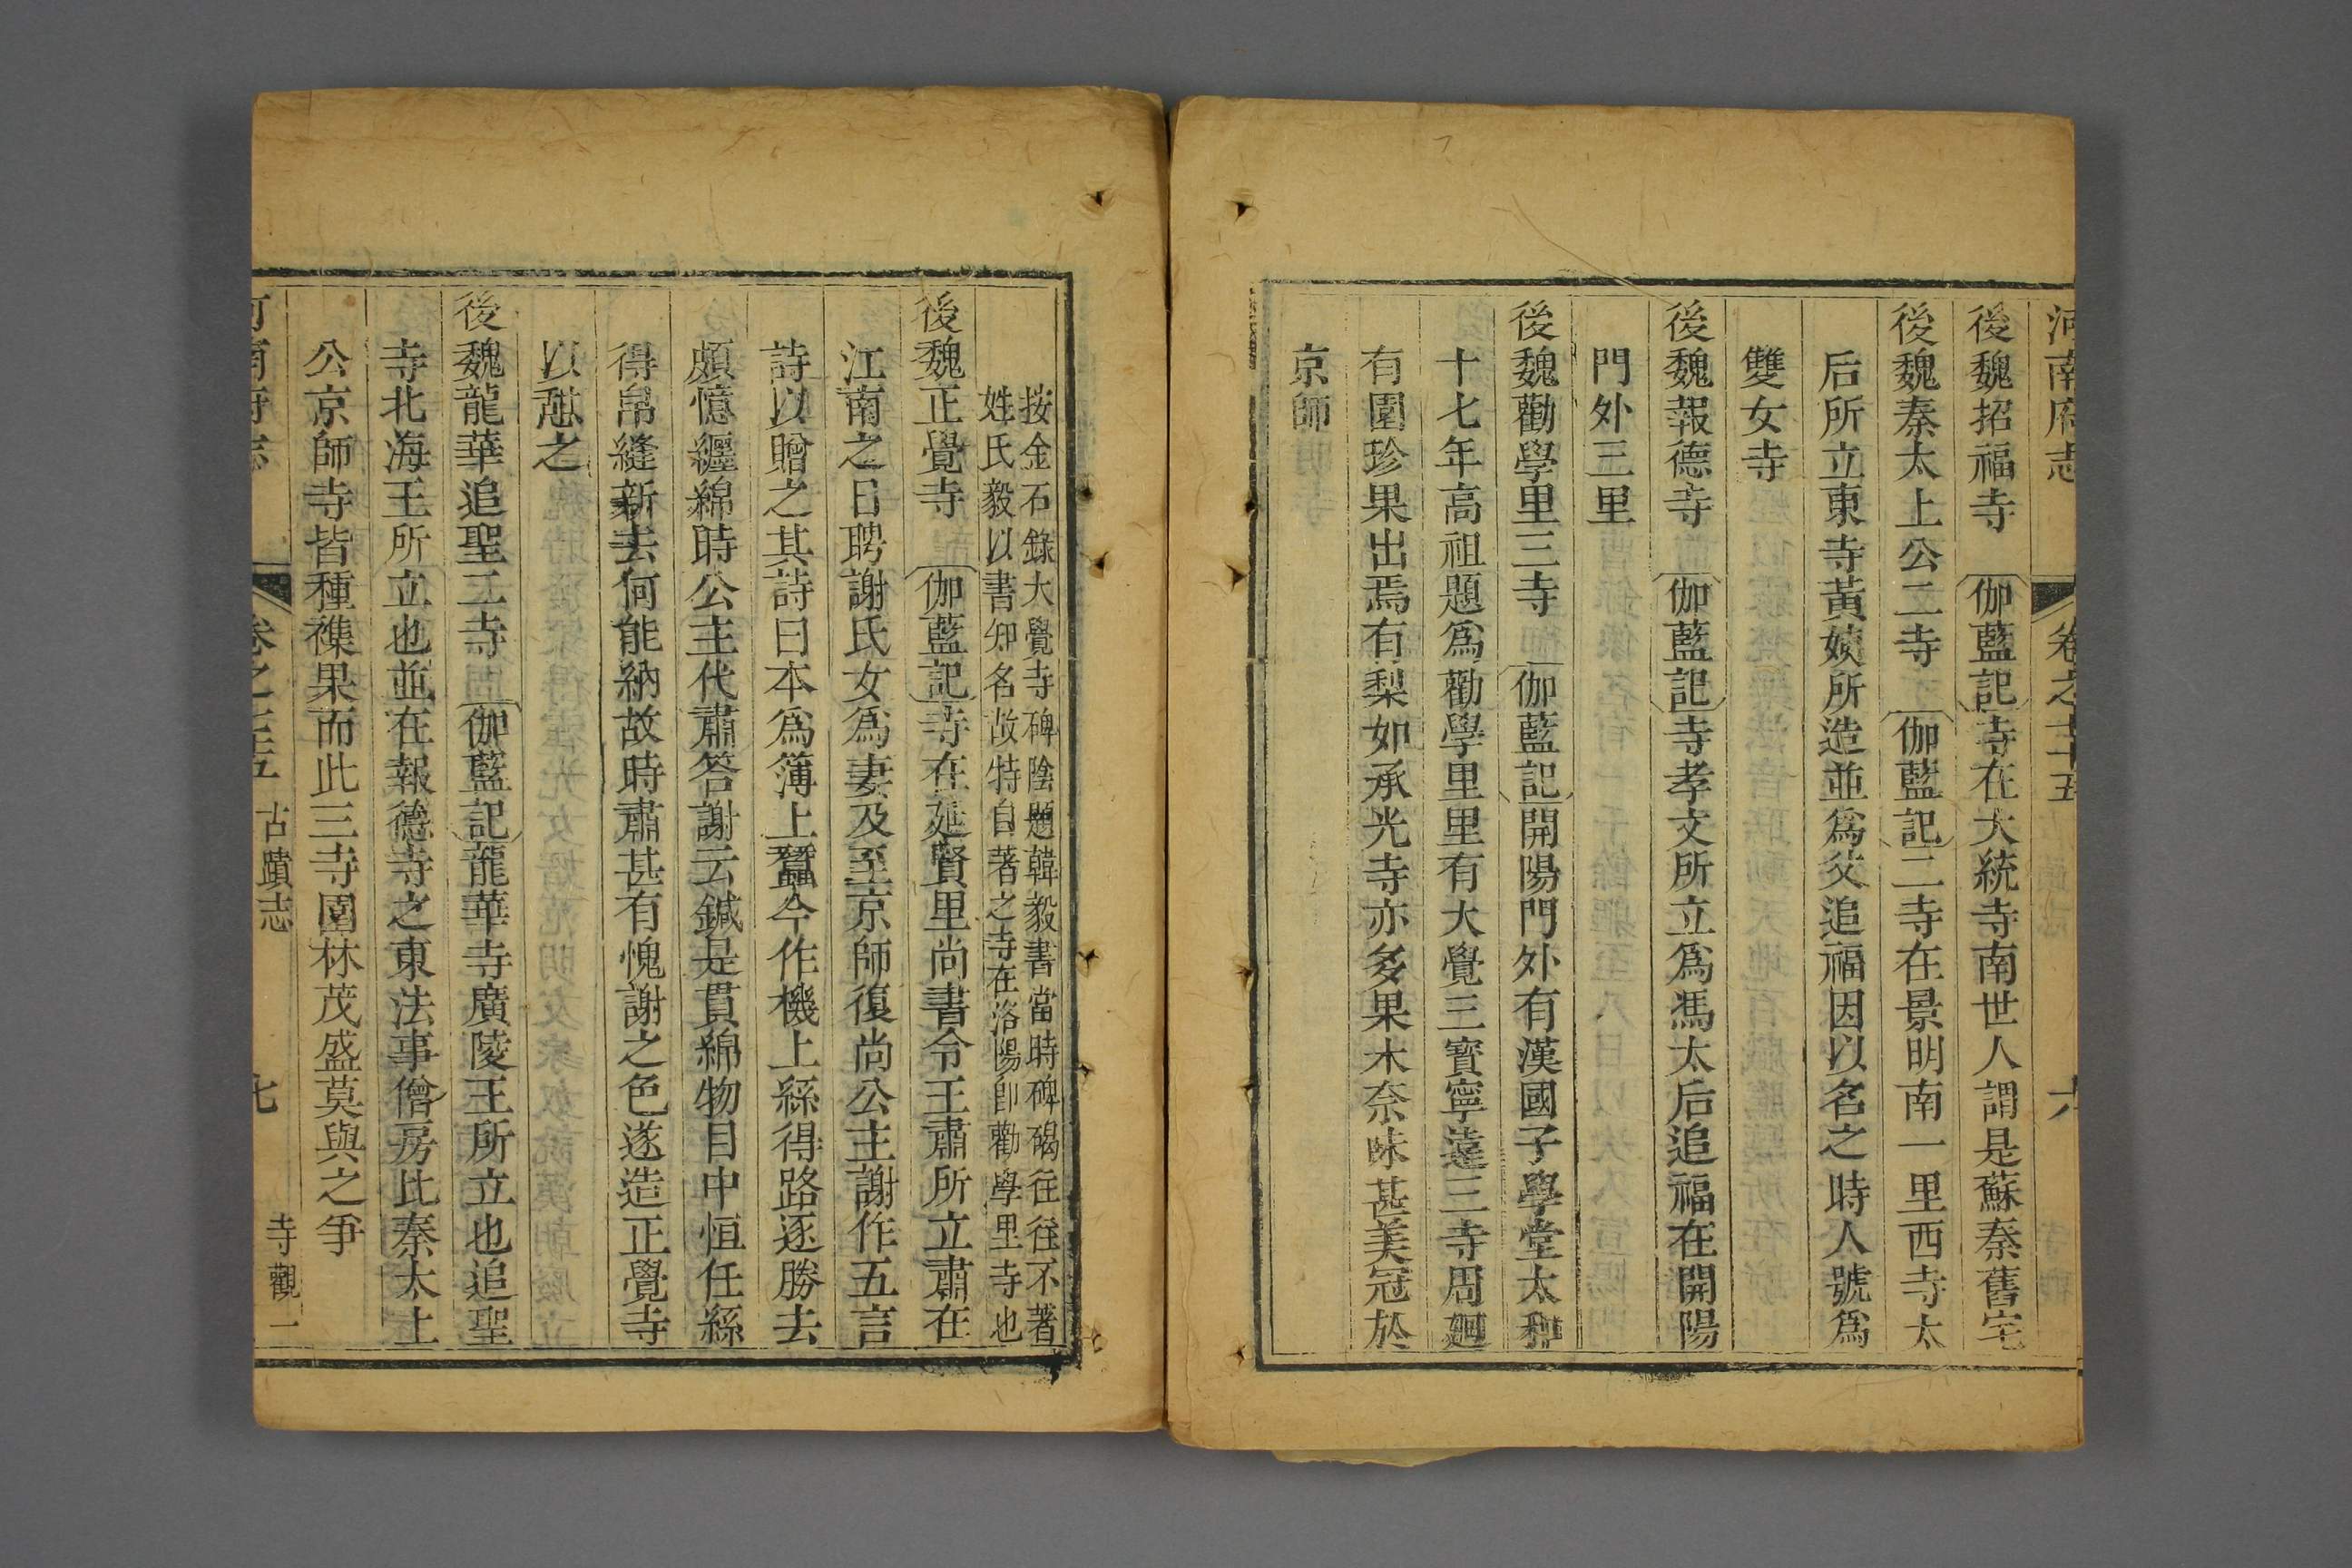 河南府志 卷之七十五 六
後魏招福寺 伽藍記寺在大統寺南世人謂是蘇秦舊宅
後魏秦太上公二寺 伽藍記二寺在景明南一里西寺太
后所立東寺黃姨所造並爲父追福因以名之時人號爲
雙女寺
後魏報德寺 伽藍記寺孝文所立爲馮太后追福在開陽
門外三里
後魏勸學里三寺 伽藍記開陽門外有漢國子學堂太和
十七年高祖題爲勸學里里有大覺三寳寧遠三寺周廻
有園珍果出焉有梨如承光寺亦多果木奈味甚美冠於
京師
按金石錄大覺寺碑陰題韓毅書當時碑碣往往不著
姓氏毅以書知名故特自著之寺在洛陽卽勸學里寺也
後魏正覺寺 伽藍記寺在延賢里尚書令王肅所立肅在
江南之日聘謝氏女爲妻及至京師復尚公主謝作五言
詩以贈之其詩曰本爲簿上蠶今作機上絲得路逐勝去
頗憶纏綿時公主代肅答謝云鍼是貫綿物目中恒任絲
得帛縫新去何能納故時肅甚有愧謝之色遂造正覺寺
以憩之
後魏龍華追聖二寺 伽藍記龍華寺廣陵王所立也追聖
寺北海王所立也並在報德寺之東法事僧房比秦太上
公京師寺皆種襍果而此三寺園林茂盛莫與之爭
河南府志 卷之七十五 古蹟志 七 寺觀一